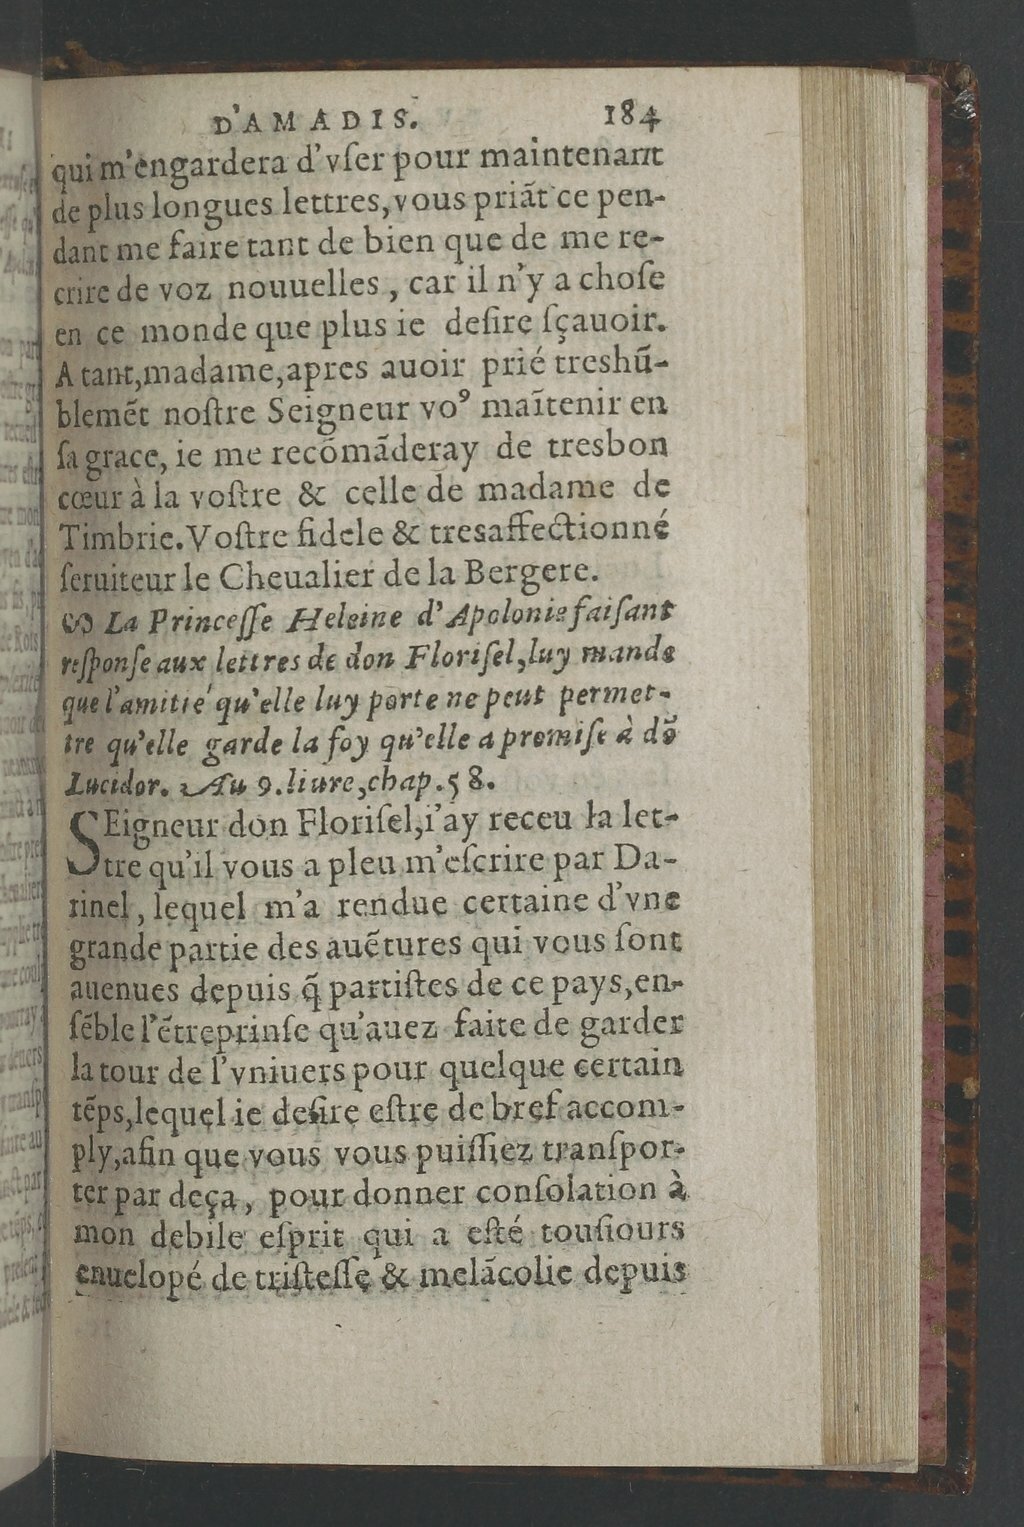 D'AMADIS. 184
qui m'engardera d'vſer pour maintenant
de plus longues lettres, vous priāt ce pen-
dant me faire tant de bien que de me re-
crire de voz nouuelles, car il n'y a choſe
en ce monde que plus ie deſire ſçauoir.
A tant, madame, apres auoir prié treshū-
blemēt noſtre Seigneur vo⁹ maītenir en
ſa grace, ie me recōmāderay de tresbon
cœur à la voſtre & celle de madame de
Timbrie. Voſtre fidele & tresaffectionné
ſeruiteur le Cheualier de la Bergere.
La Princeſſe Heleine d'Apolonie faiſant
reſponſe aux lettres de don Floriſel, luy mande
que l'amitié qu'elle luy porte ne peut permet-
tre qu'elle garde la foy qu'elle a promiſe à dō
Lucidor. Au 9. liure, chap. 58.
SEigneur don Floriſel, i'ay receu la let-
tre qu'il vous a pleu m'eſcrire par Da-
rinel, lequel m'a rendue certaine d'vne
grande partie des auētures qui vous ſont
auenues depuis q̃ partiſtes de ce pays, en-
ſēble l'ētreprinſe qu'auez faite de garder
la tour de l'vniuers pour quelque certain
tēps, lequel ie deſire eſtre de bref accom-
ply, afin que vous vous puiſſiez tranſpor-
ter par deça, pour donner conſolation à
mon debile eſprit qui a eſté touſiours
enuelopé de triſteſſe & melācolie depuis